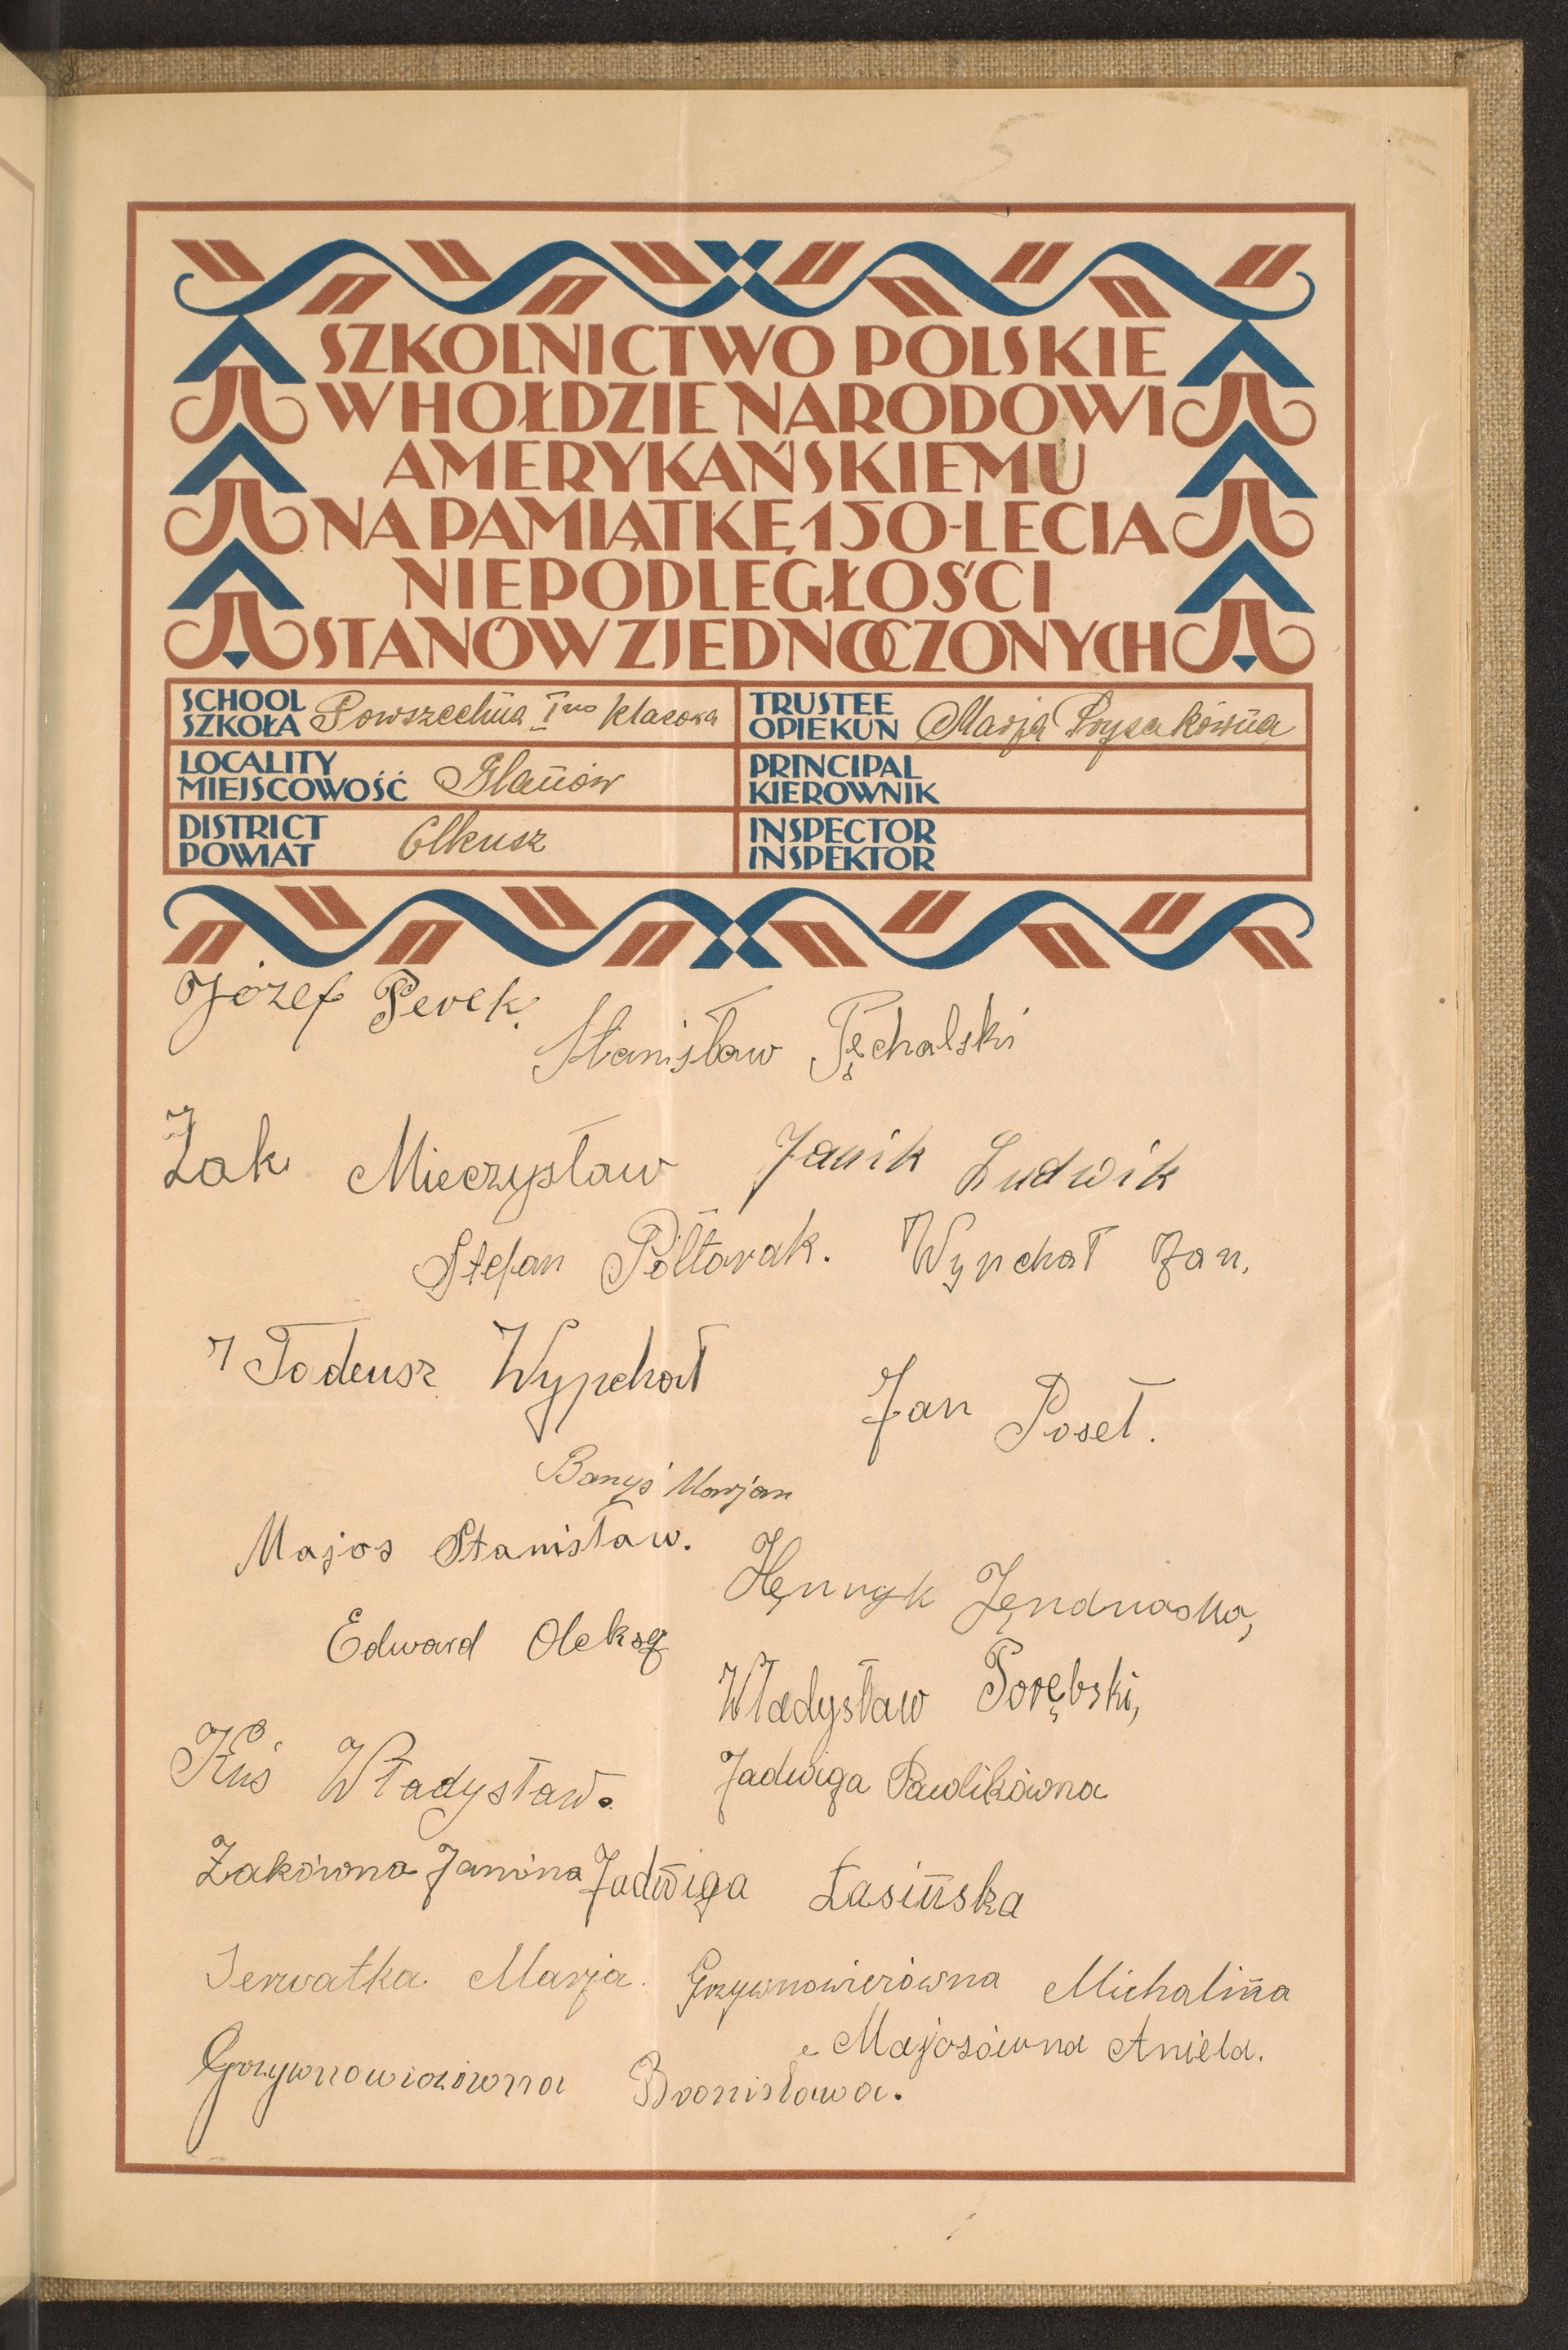 SZKOLNICTWO POLSKIE
W HOŁDZIE NARODOWI
AMERYKAŃSKIEMU
NA PAMIĄTKĘ 150-LECIA
NIEPODLEGŁOŚCI
STANÓW ZJEDNOCZONYCH
SCHOOL
SZKOŁA Powszechna I klasowa
TRUSTEE
OPIEKUN Marja
LOCALITY
MIEJSCOWOŚĆ Glanów
PRINCIPAL
KIEROWNIK
DISTRICT
POWIAT Olkusz
INSPECTOR
INSPEKTOR
Józef Perek.
Stanisław Pęchalski
Żak Mieczysław Janik Ludwik
Stefan Półtorak. Wypchał Jan.
Tadeusz Wypchał
Jan Poseł.
Banyś Marjan
Majos Stanisław.
Henryk
Edward Oleksy
Władysław Porębski,
Kuś Władysław.
Jadwiga Pawlikówna
Żakówna Janina Jadwiga Łasińska
Serwatka Marja. Grzywnowiczówna Michalina
Majosówna Aniela.
Grzywnowiczówna Bronisława.